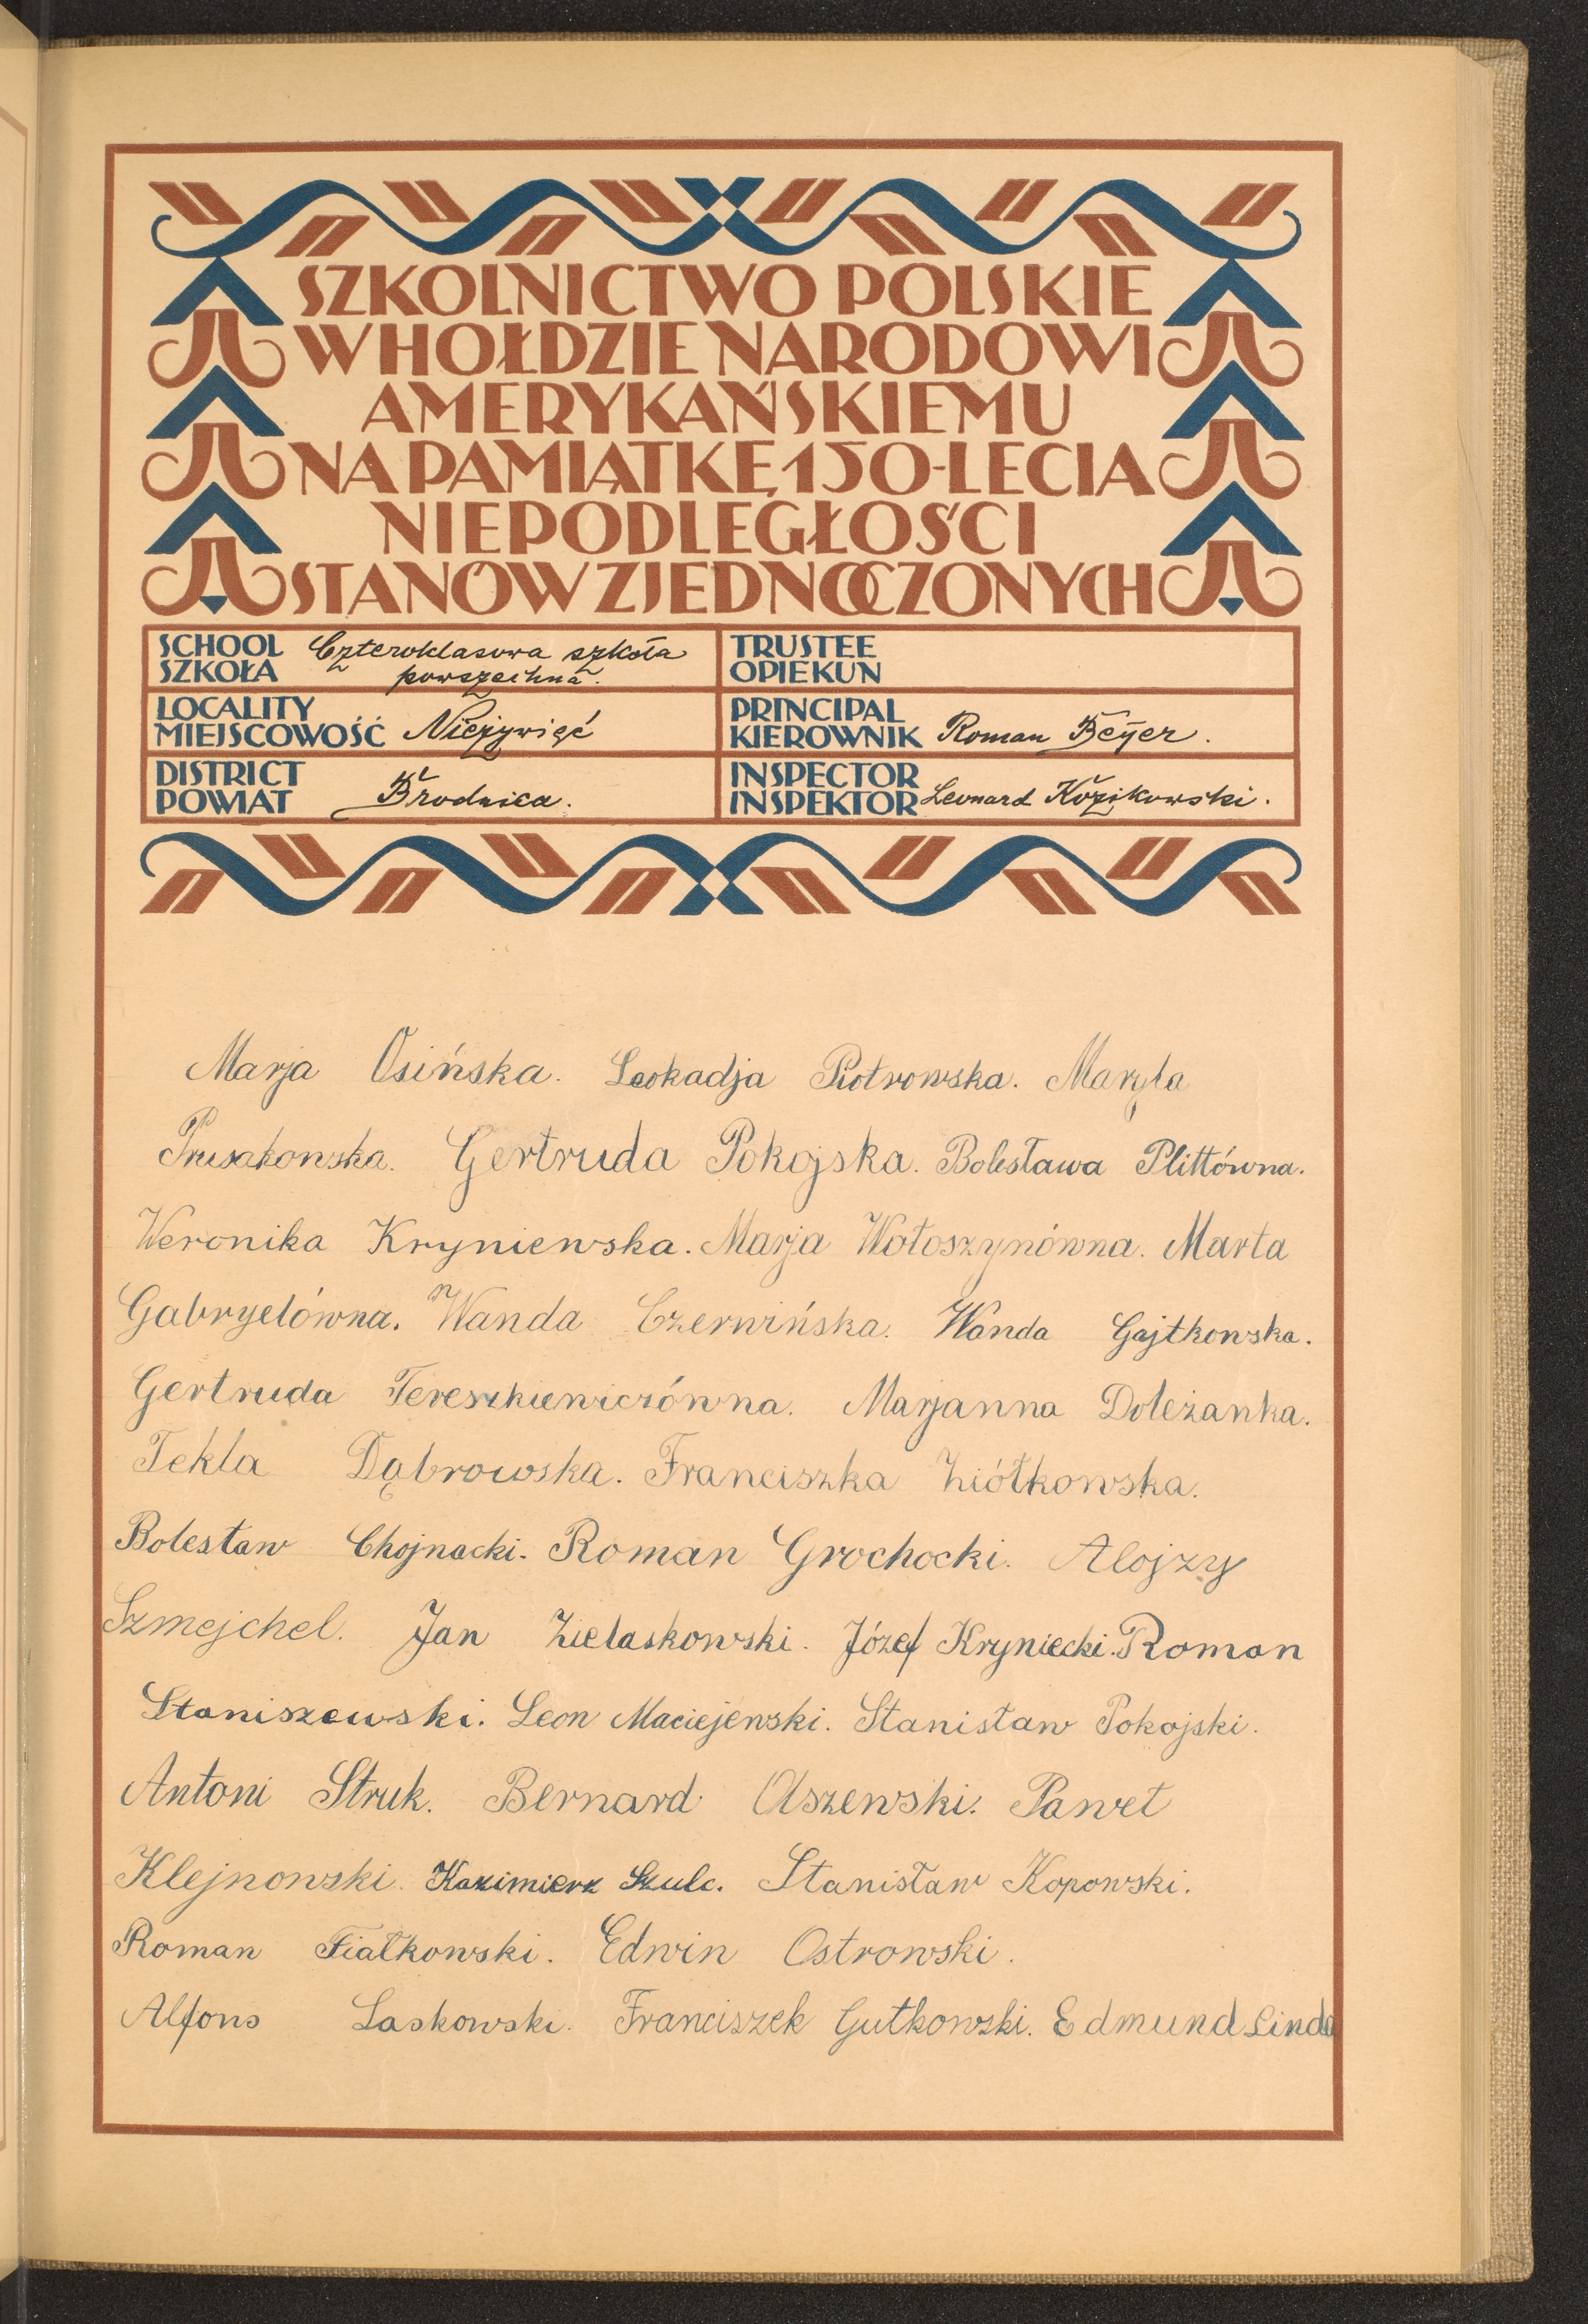 SZKOLNICTWO POLSKIE
W HOŁDZIE NARODOWI
AMERYKAŃSKIEMU
NA PAMIĄTKĘ 150-LECIA
NIEPODLEGŁOŚCI
STANÓW ZJEDNOCZONYCH
SCHOOL
SZKOŁA
Czteroklasowa szkoła
powszechna.
TRUSTEE
OPIEKUN
LOCALITY
MIEJSCOWOŚĆ
Nieżywięć
PRINCIPAL
KIEROWNIK
Roman Beyer.
DISTRICT
POWIAT
Brodnica.
INSPECTOR
INSPEKTOR
Leonard Kozikowski.
Marja Osińska. Leokadja Piotrowska. Maryla
Prusakowska. Gertruda Pokojska. Bolesława Plittówna.
Weronika Kryniewska. Marja Wołoszynówna. Marta
Gabryelówna. Wanda Czerwińska. Wanda Gajtkowska.
Gertruda Tereszkiewiczówna. Marjanna Doleżanka.
Tekla Dąbrowska. Franciszka Ziółkowska.
Bolesław Chojnacki. Roman Grochocki. Alojzy
Szmejchel. Jan Zielaskowski. Józef Kryniecki. Roman
Staniszewski. Leon Maciejewski. Stanisław Pokojski.
Antoni Struk. Bernard Olszewski. Paweł
Klejnowski. Kazimierz Szulc. Stanisław Kopowski.
Roman Fiałkowski. Edwin Ostrowski.
Alfons Laskowski. Franciszek Gutkowski. Edmund Linda